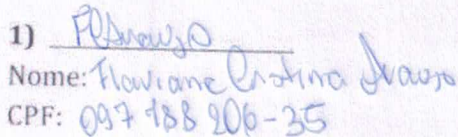 1) FCAraujo
Nome: Flaviane Cristina Araujo
CPF: 097 188 206-35